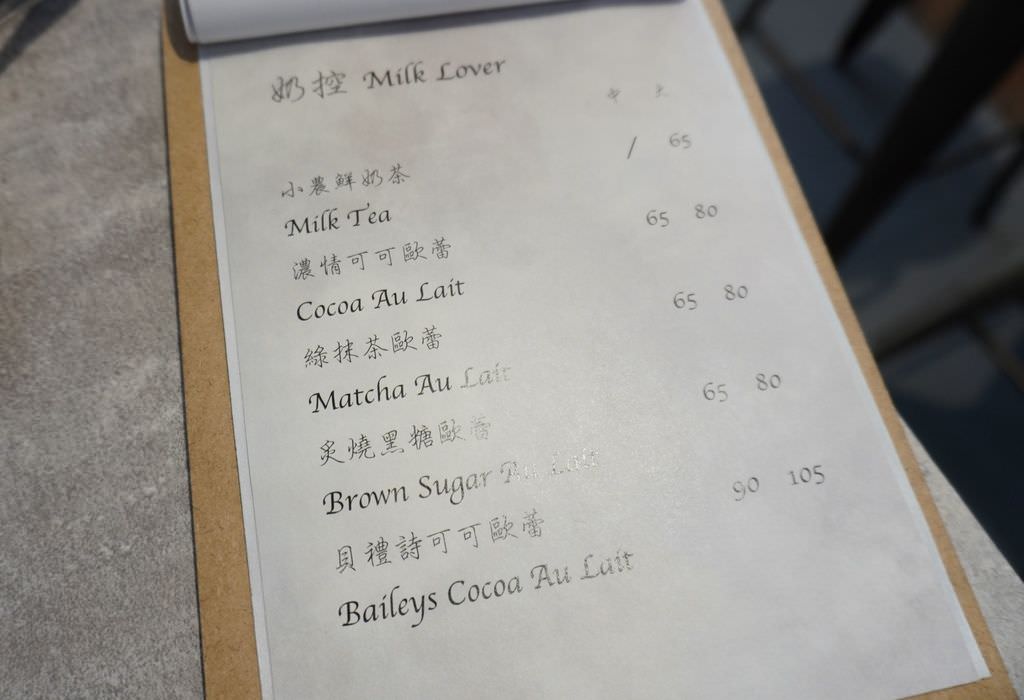 奶控 Milk Lover
中 大
小農鮮奶茶 / 65
Milk Tea
濃情可可歐蕾 65 80
Cocoa Au Lait
綠抹茶歐蕾 65 80
Matcha Au Lait
炙燒黑糖歐蕾 65 80
Brown Sugar Au Lait
貝禮詩可可歐蕾 90 105
Baileys Cocoa Au Lait